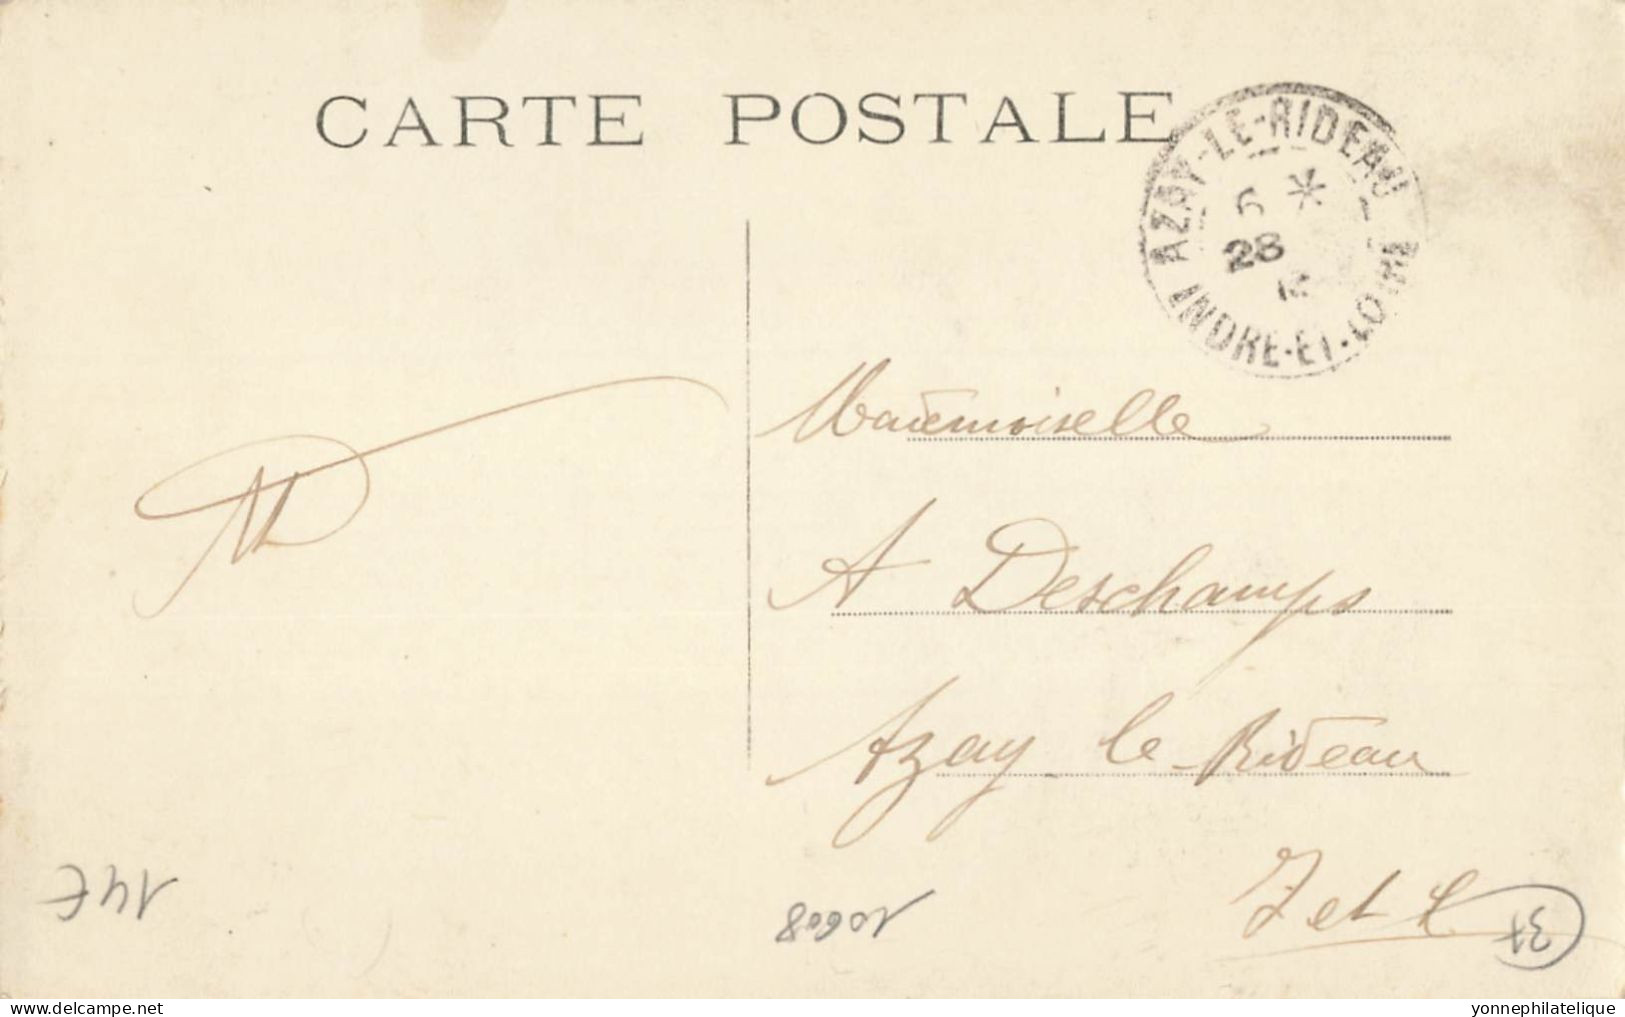 CARTE POSTALE
AZAY-LE-RIDEAU
6 *
28
INDRE-ET-LOIRE
Mademoiselle
A Deschamps
Azay le Rideau
I et L
37
10608
14€
delcampe.net
yonnephilatelique